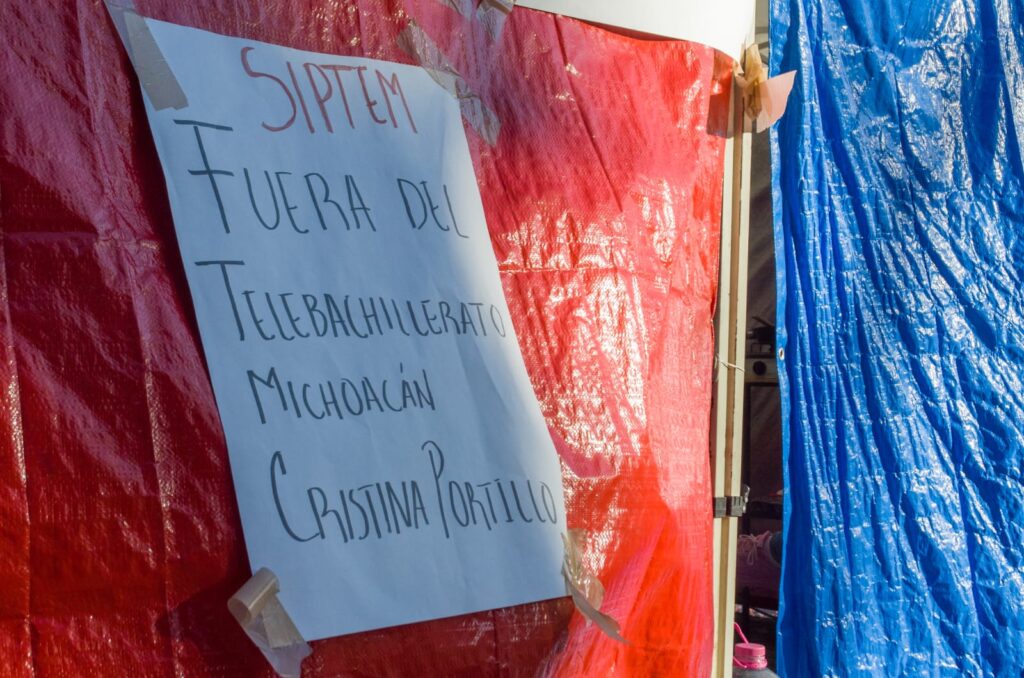 SIPTEM
FUERA DEL
TELEBACHILLERATO
MICHOACÁN
CRISTINA PORTILLO